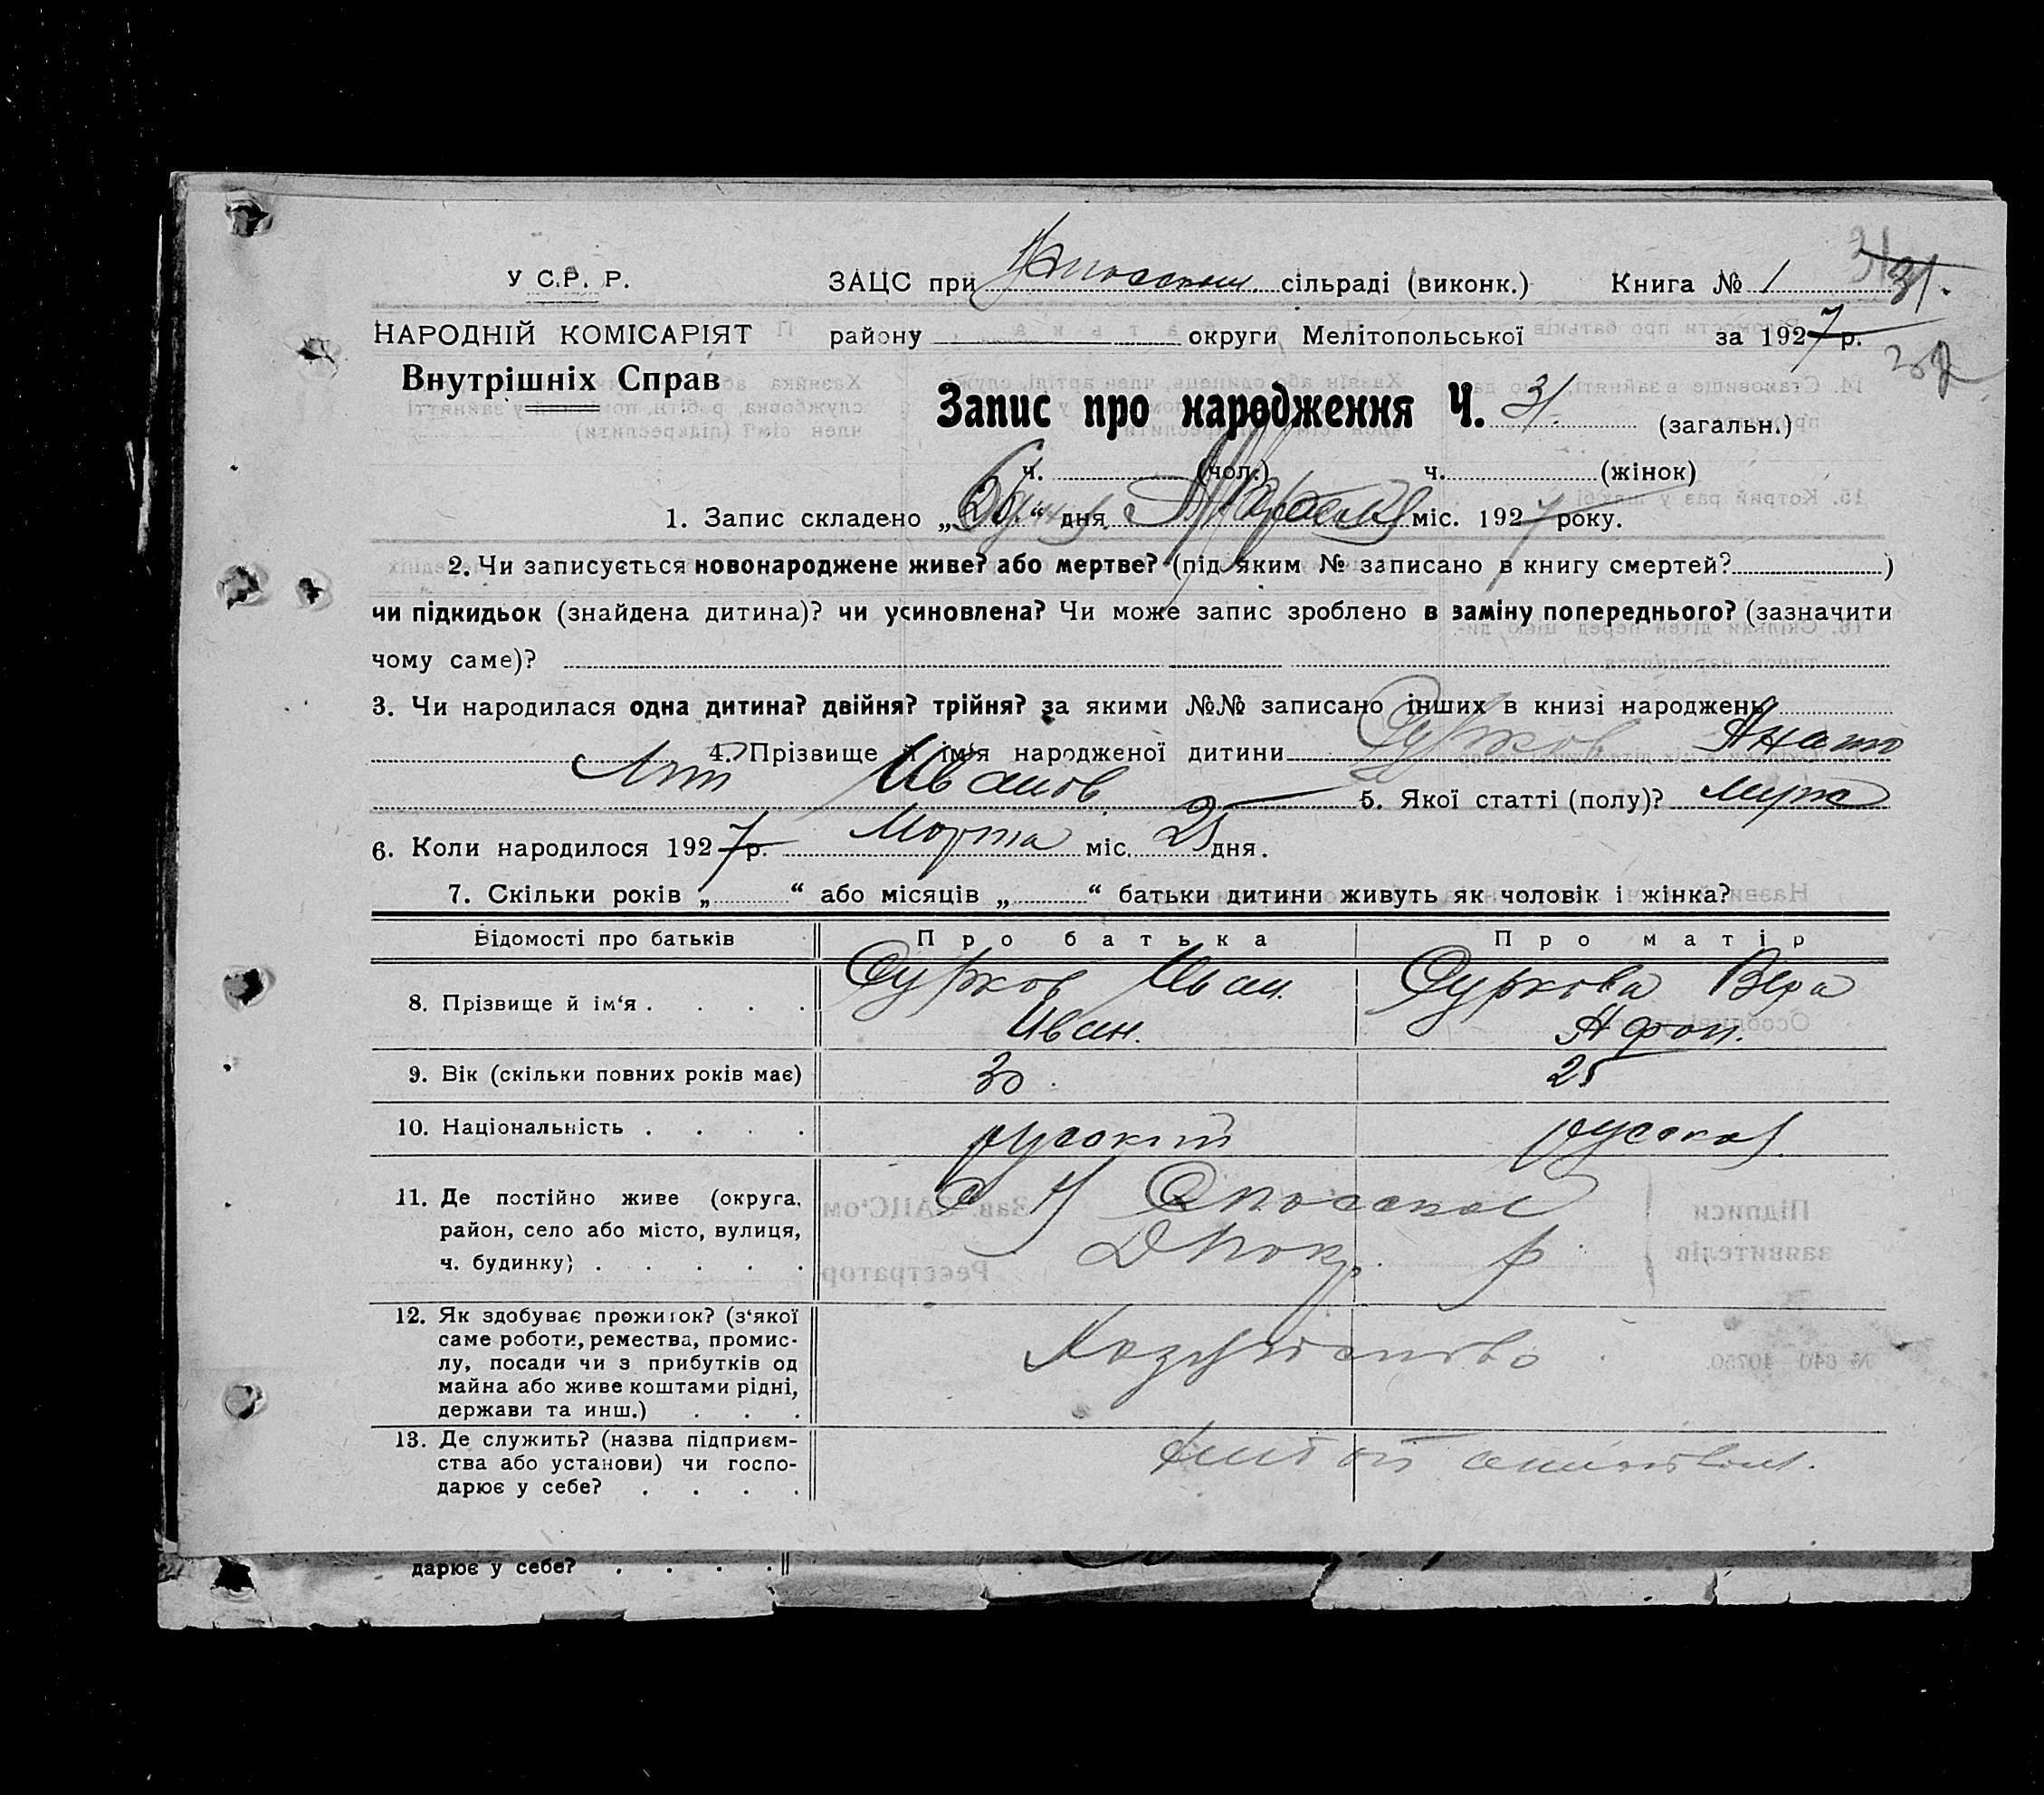 У С.Р. Р. ЗАЦС при сільраді (виконк.) Книга № 1 31.
НАРОДНІЙ КОМІСАРІЯТ району округи Мелітопольської за 1927 р.
Внутрішніх Справ
Запис про народження Ч. 31 (загальн.)
ч. (чол.) ч. (жінок)
1. Запис складено „ “ дня міс. 1927 року.
2. Чи записується новонароджене живе? або мертве? (під яким № записано в книгу смертей? )
чи підкидьок (знайдена дитина)? чи усиновлена? Чи може запис зроблено в заміну попереднього? (зазначити
чому саме)?
3. Чи народилася одна дитина? двійня? трійня? за якими №№ записано інших в книзі народжень
4. Прізвище й ім‘я народженої дитини Сурков Анато
лий Иванов. 5. Якої статті (полу)? мужс
6. Коли народилося 1927 р. Марта міс. 25 дня.
7. Скільки років „ “ або місяців „ “ батьки дитини живуть як чоловік і жінка?
Відомості про батьків Про батька Про матір
8. Прізвище й ім‘я . . . . Сурков Иван. Суркова Вера
Иван. Афон.
9. Вік (скільки повних років має) 30. 25
10. Національність . . . . русский русская
11. Де постійно живе (округа,
район, село або місто, вулиця,
ч. будинку) . . . . .
12. Як здобуває прожиток? (з‘якої
саме роботи, ремества, промис-
лу, посади чи з прибутків од
майна або живе коштами рідні,
держави та инш.) . . .
13. Де служить? (назва підприєм-
ства або установи) чи госпо-
дарює у себе? . . . .
дарює у себе? . . . .